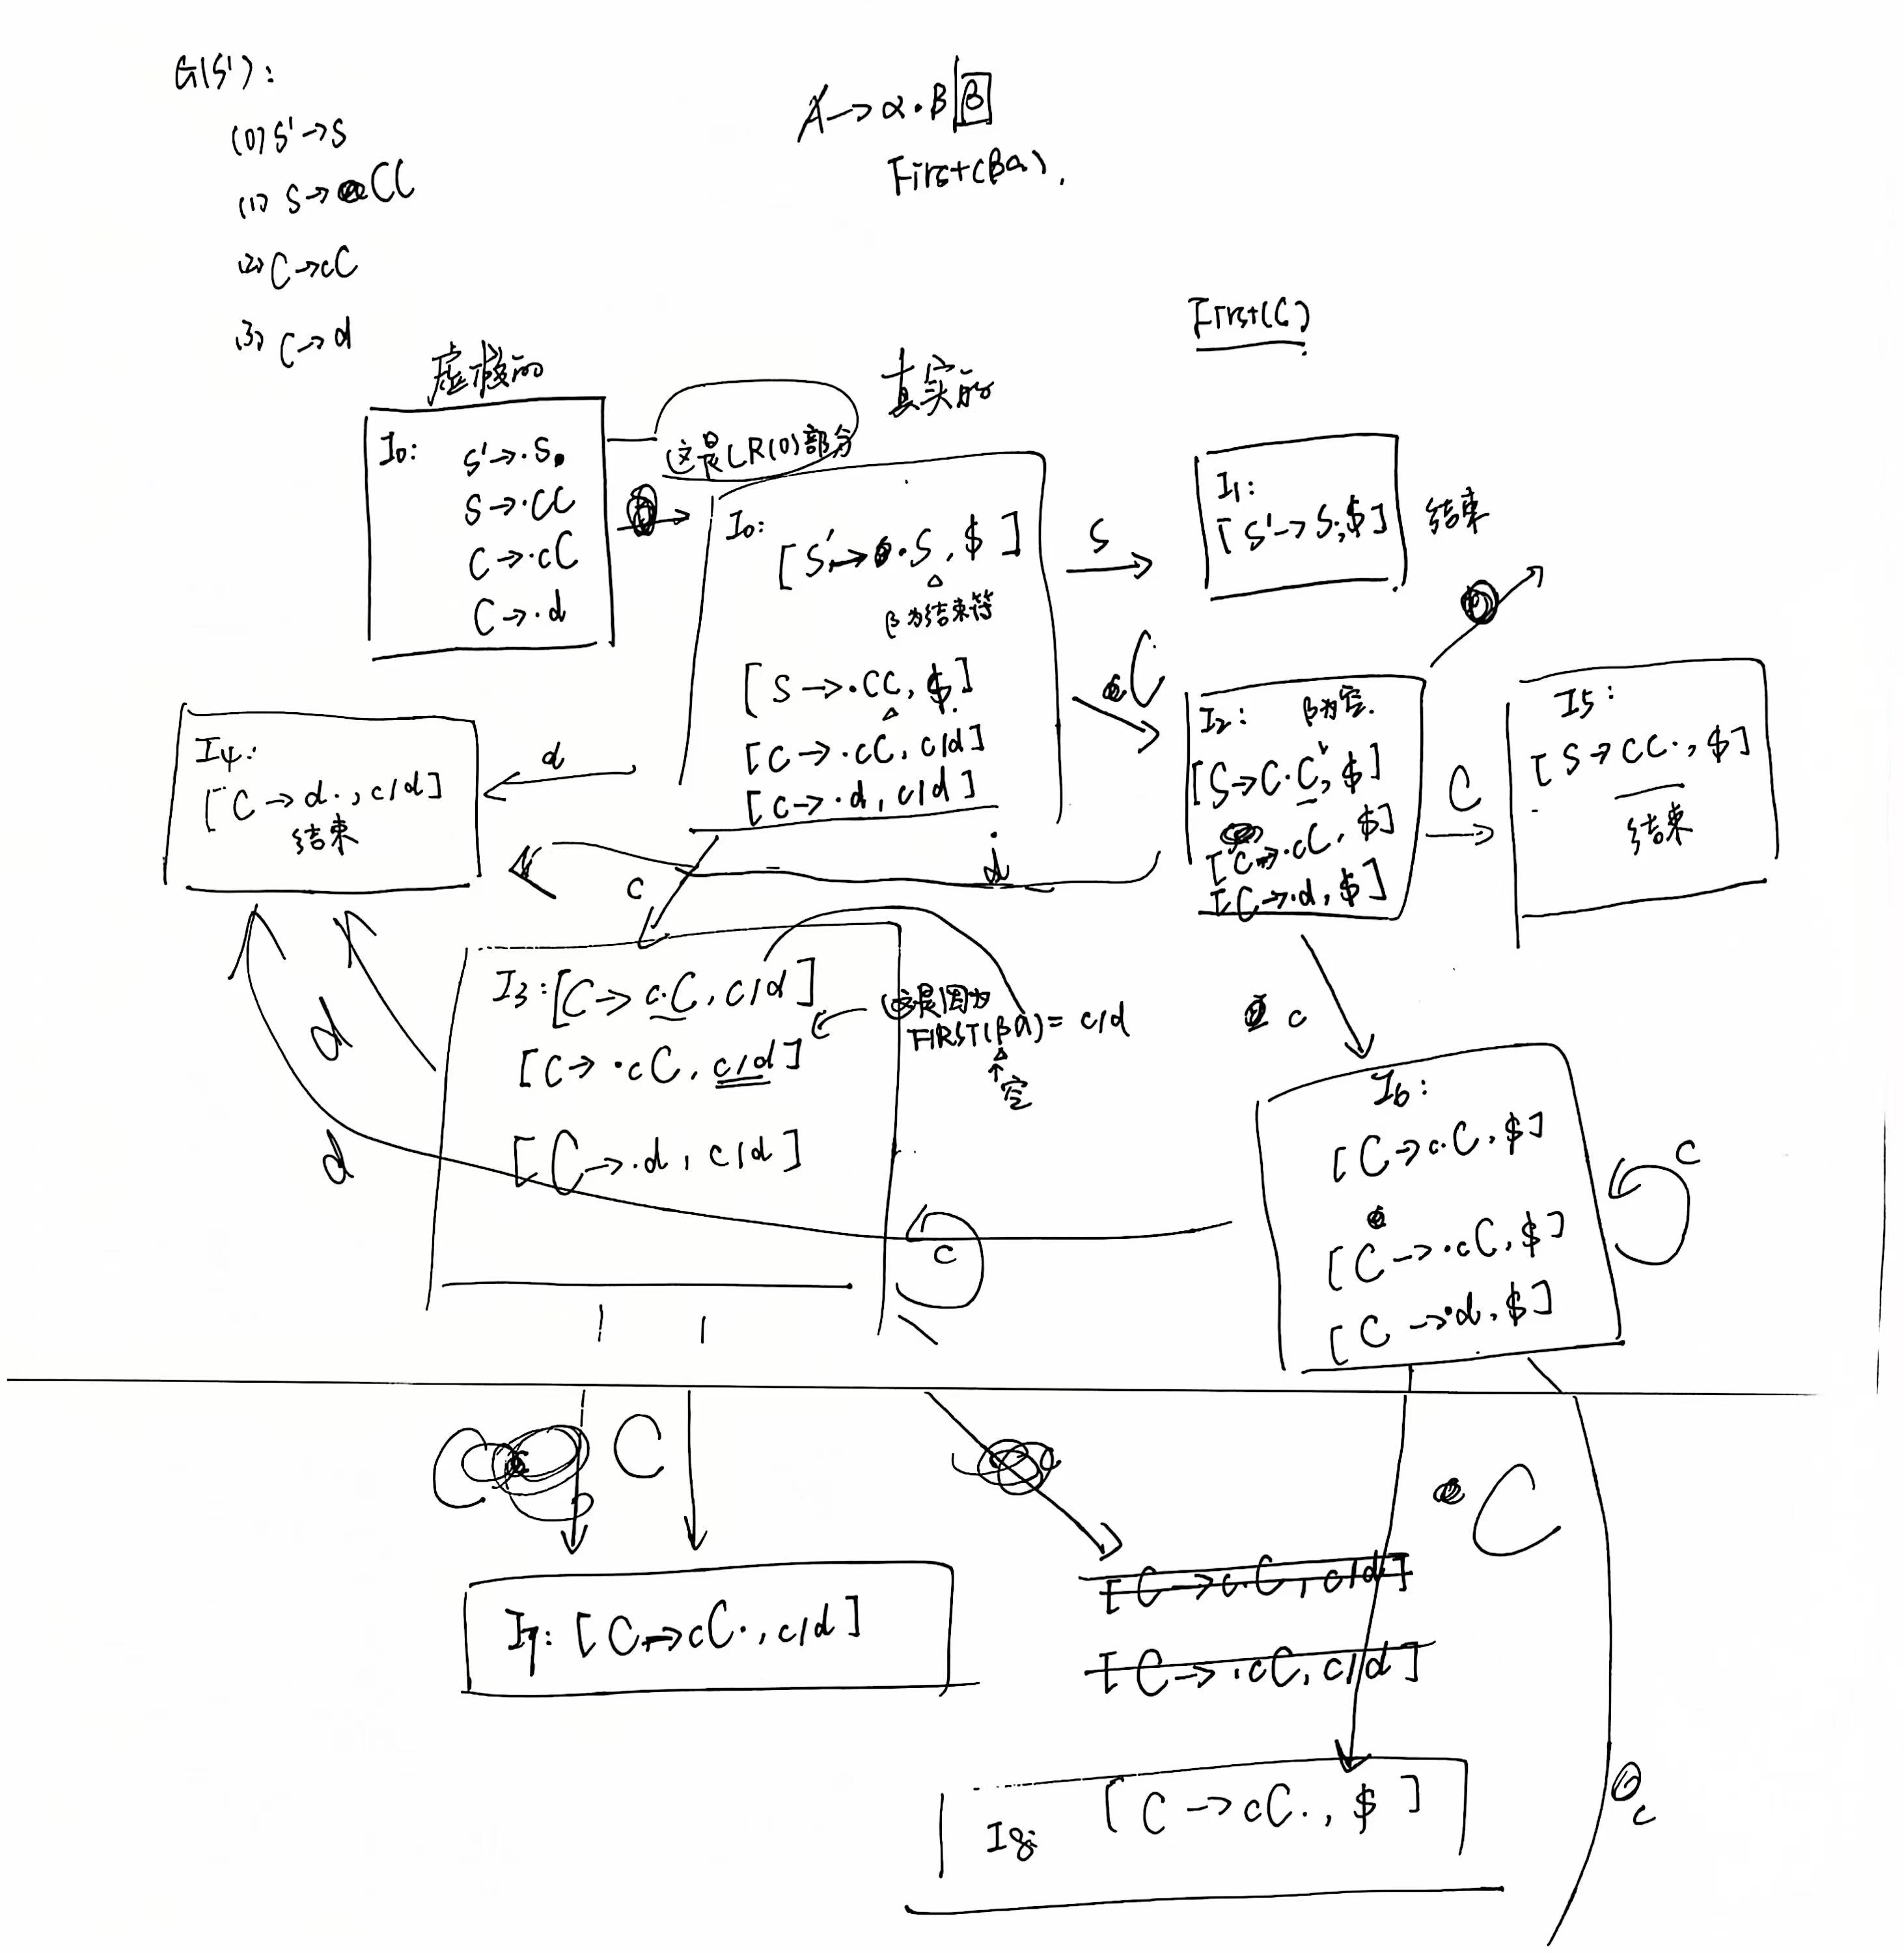 G(S'):
(0) S'→S
(1) S→CC
(2) C→cC
(3) C→d
A→α·B β
First(βa).
First(C)
虚拟的
I0: S'→·S
S→·CC
C→·cC
C→·d
这是LR(0)部分
真实的
I0:
[S'→·S, $]
β为结束符
[S→·CC, $]
[C→·cC, c/d]
[C→·d, c/d]
S
I1:
[S'→S·, $]
结束
C
I2: β为空.
[S→C·C, $]
[C→·cC, $]
[C→·d, $]
C
I5:
[S→CC·, $]
结束
d
I4:
[C→d·, c/d]
结束
d
c
I3: [C→c·C, c/d]
[C→·cC, c/d]
[C→·d, c/d]
这是因为
FIRST(βa) = c/d
空
c
d
d
c
I6:
[C→c·C, $]
[C→·cC, $]
[C→·d, $]
c
C
C
I7: [C→cC·, c/d]
[C→c·C, c/d]
[C→·cC, c/d]
I8: [C→cC·, $]
c